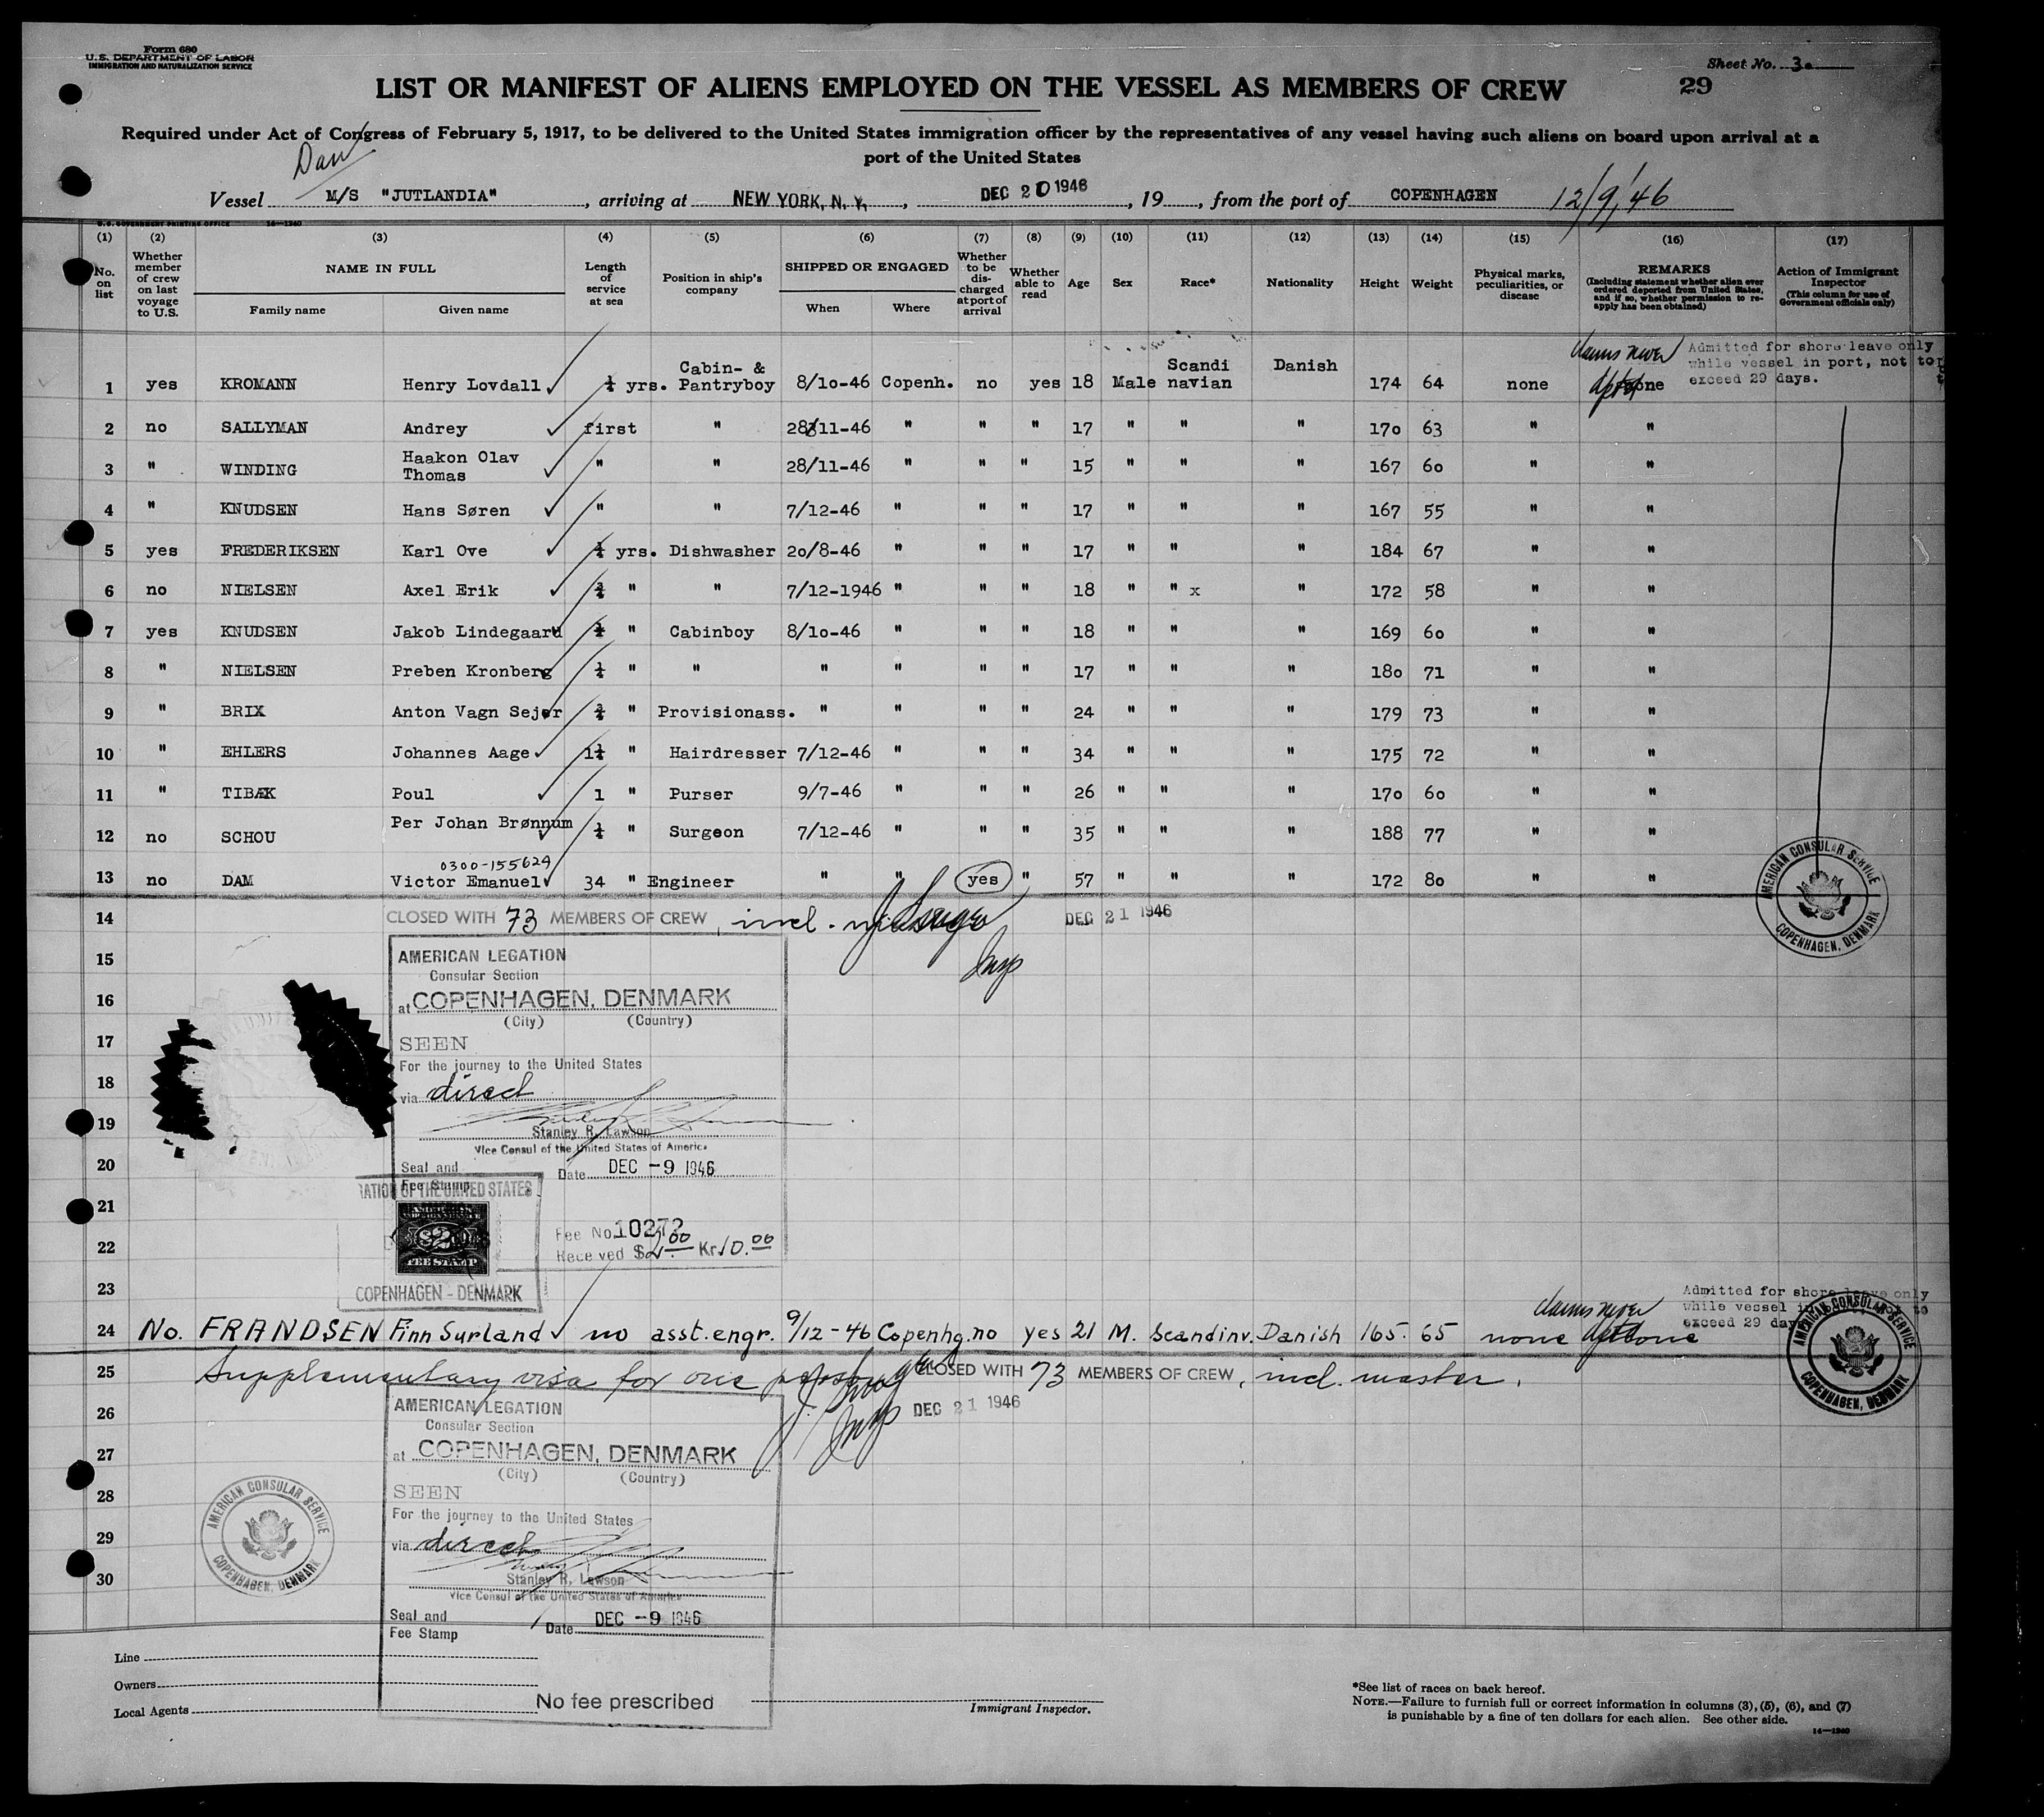 Form 680
U.S. DEPARTMENT OF LABOR
IMMIGRATION AND NATURALIZATION SERVICE
Sheet No. 3.
LIST OR MANIFEST OF ALIENS EMPLOYED ON THE VESSEL AS MEMBERS OF CREW
29
Required under Act of Congress of February 5, 1917, to be delivered to the United States immigration officer by the representatives of any vessel having such aliens on board upon arrival at a
port of the United States
Dan
Vessel M/S "JUTLANDIA", arriving at NEW YORK, N. Y., DEC 20 1946, 19, from the port of COPENHAGEN 12/9/46
U.S. GOVERNMENT PRINTING OFFICE 14—1240
(1) (2) (3) (4) (5) (6) (7) (8) (9) (10) (11) (12) (13) (14) (15) (16) (17)
No. on list
Whether member of crew on last voyage to U.S.
NAME IN FULL
Family name
Given name
Length of service at sea
Position in ship's company
SHIPPED OR ENGAGED
When
Where
Whether to be discharged at port of arrival
Whether able to read
Age
Sex
Race*
Nationality
Height
Weight
Physical marks, peculiarities, or disease
REMARKS
(Including statement whether alien ever ordered deported from United States, and if so, whether permission to reapply has been obtained)
Action of Immigrant Inspector
(This column for use of Government officials only)
1 yes KROMANN Henry Lovdall ¼ yrs. Cabin- & Pantryboy 8/10-46 Copenh. no yes 18 Male Scandi navian Danish 174 64 none claims never Admitted for shore leave only while vessel in port, not to exceed 29 days.
2 no SALLYMAN Andrey first " 28/11-46 " " " 17 " " " 170 63 " "
3 " WINDING Haakon Olav Thomas " " 28/11-46 " " " 15 " " " 167 60 " "
4 " KNUDSEN Hans Søren " " 7/12-46 " " " 17 " " " 167 55 " "
5 yes FREDERIKSEN Karl Ove yrs. Dishwasher 20/8-46 " " " 17 " " " 184 67 " "
6 no NIELSEN Axel Erik ¾ " " 7/12-1946 " " " 18 " " x " 172 58 " "
7 yes KNUDSEN Jakob Lindegaard " Cabinboy 8/10-46 " " " 18 " " " 169 60 " "
8 " NIELSEN Preben Kronberg ¼ " " " " " " 17 " " " 180 71 " "
9 " BRIX Anton Vagn Sejer ¾ " Provisionass. " " " " 24 " " " 179 73 " "
10 " EHLERS Johannes Aage 1¼ " Hairdresser 7/12-46 " " " 34 " " " 175 72 " "
11 " TIBÆK Poul 1 " Purser 9/7-46 " " " 26 " " " 170 60 " "
12 no SCHOU Per Johan Brønnum ¼ " Surgeon 7/12-46 " " " 35 " " " 188 77 " "
0300-155629
13 no DAM Victor Emanuel 34 " Engineer " " yes " 57 " " " 172 80 " "
AMERICAN CONSULAR SERVICE
COPENHAGEN, DENMARK
14 CLOSED WITH 73 MEMBERS OF CREW, incl. DEC 21 1946
Insp
15
16
17
18
19
20
21
22
23
AMERICAN LEGATION
Consular Section
at COPENHAGEN, DENMARK
(City) (Country)
SEEN
For the journey to the United States
via direct
Stanley R. Lawson
Vice Consul of the United States of America
Seal and
Fee Stamp
Date DEC -9 1946
OF THE UNITED STATES
$2
FEE STAMP
Fee No. 10272
Received $2.00 Kr 10.00
COPENHAGEN - DENMARK
24 No. FRANDSEN Finn Surland no asst.engr. 9/12-46 Copenhg. no yes 21 M. Scandinv. Danish 165. 65 none claims never Admitted for shore leave only while vessel in port, not to exceed 29 days
AMERICAN CONSULAR SERVICE
COPENHAGEN, DENMARK
25 Supplementary visa for one person CLOSED WITH 73 MEMBERS OF CREW, incl. master.
26 Insp DEC 21 1946
27
28
29
30
AMERICAN LEGATION
Consular Section
at COPENHAGEN, DENMARK
(City) (Country)
SEEN
For the journey to the United States
via direct
Stanley R. Lawson
Vice Consul of the United States of America
Seal and
Fee Stamp
Date DEC -9 1946
No fee prescribed
AMERICAN CONSULAR SERVICE
COPENHAGEN, DENMARK
Line
Owners
Local Agents
Immigrant Inspector.
*See list of races on back hereof.
NOTE.—Failure to furnish full or correct information in columns (3), (5), (6), and (7)
is punishable by a fine of ten dollars for each alien. See other side.
14—1240